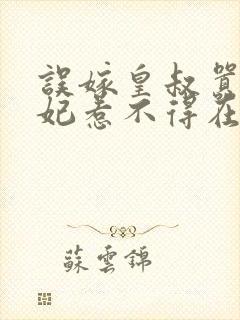 誤嫁皇叔
妃惹不得在
蘇雲錦